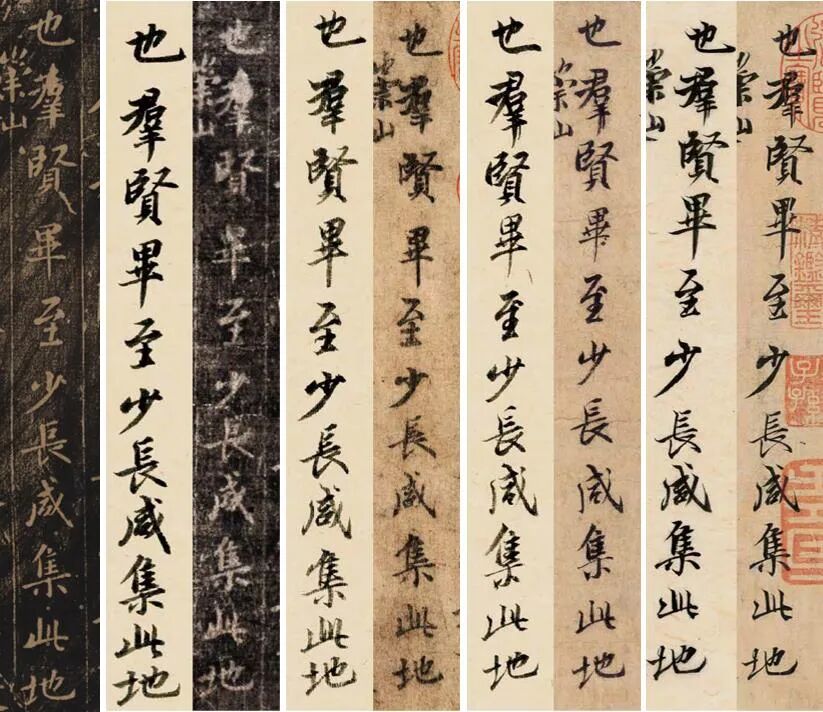 也羣賢畢至少長咸集此地
崇山
也羣賢畢至少長咸集此地
崇山
也羣賢畢至少長咸集此地
崇山
也羣賢畢至少長咸集此地
也羣賢畢至少長咸集此地
崇山
也羣賢畢至少長咸集此地
也羣賢畢至少長咸集此地
崇山
也羣賢畢至少長咸集此地
也羣賢畢至少長咸集此地
崇山